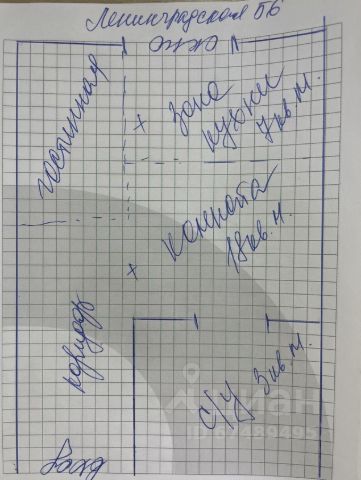 Ленинградская 56
окно
гостинная
+ зона
кухни
7 кв. м.
+ комната
18 кв. м.
коридор
с/у 3 кв. м.
Вход